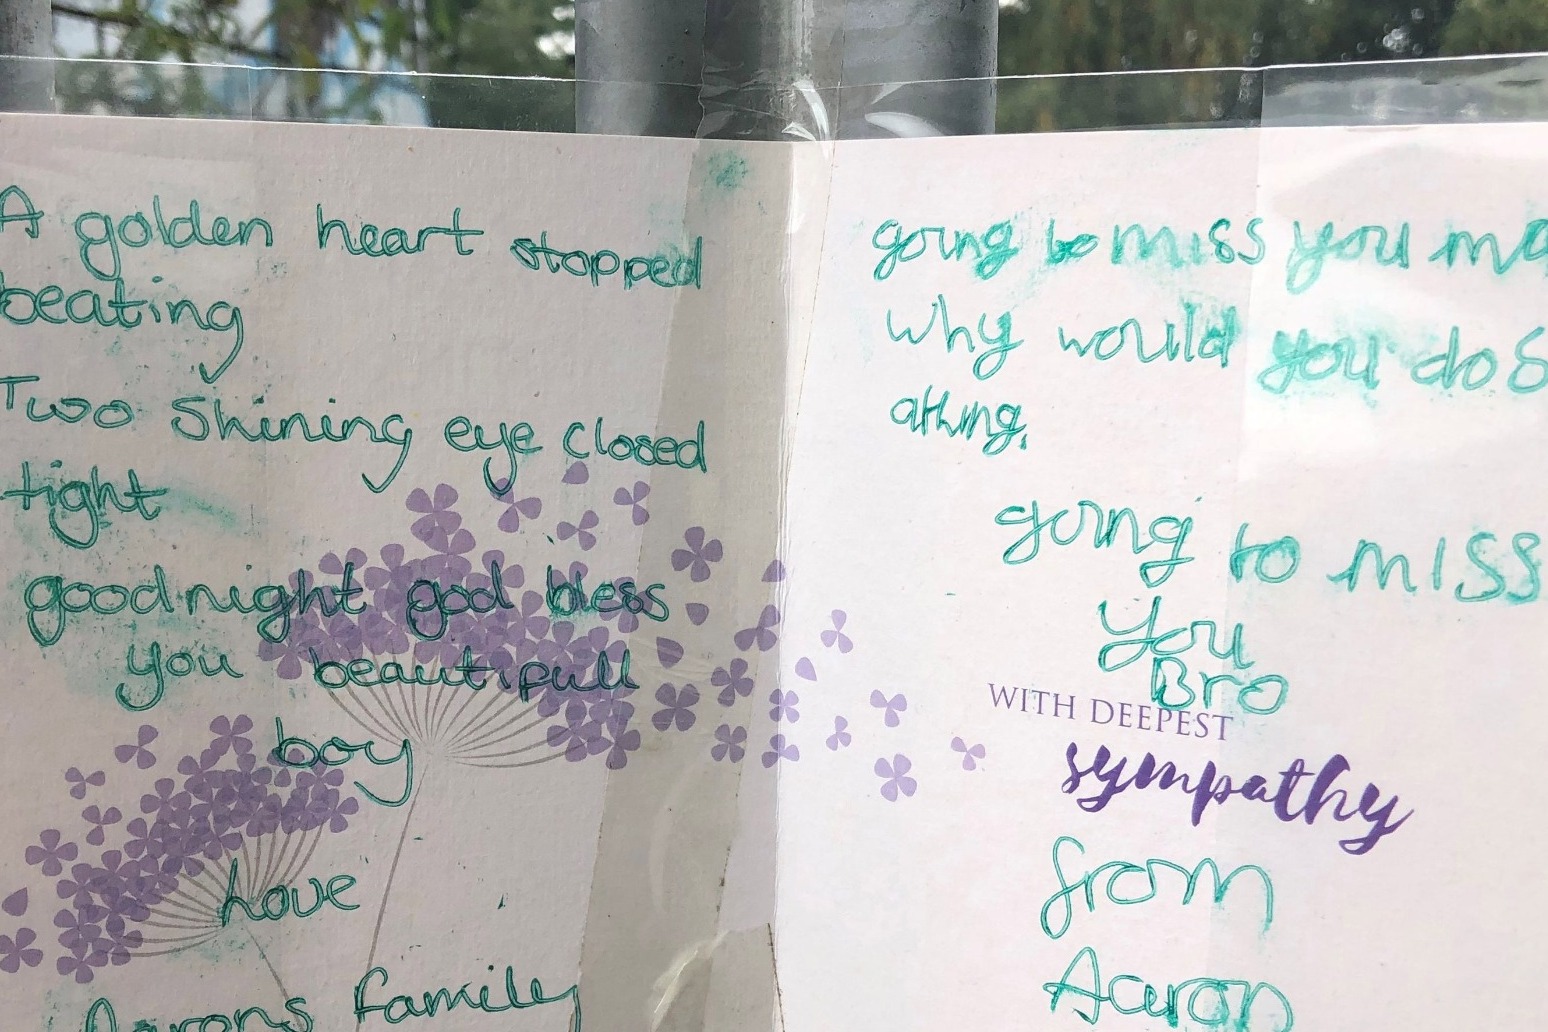 A golden heart stopped
beating
Two shining eye closed
tight
goodnight god bless
you beautifull
boy
Love
Aarons family
going to miss you ma
why would you do S
athing.
going to miss
you
Bro
WITH DEEPEST
sympathy
from
Aaron